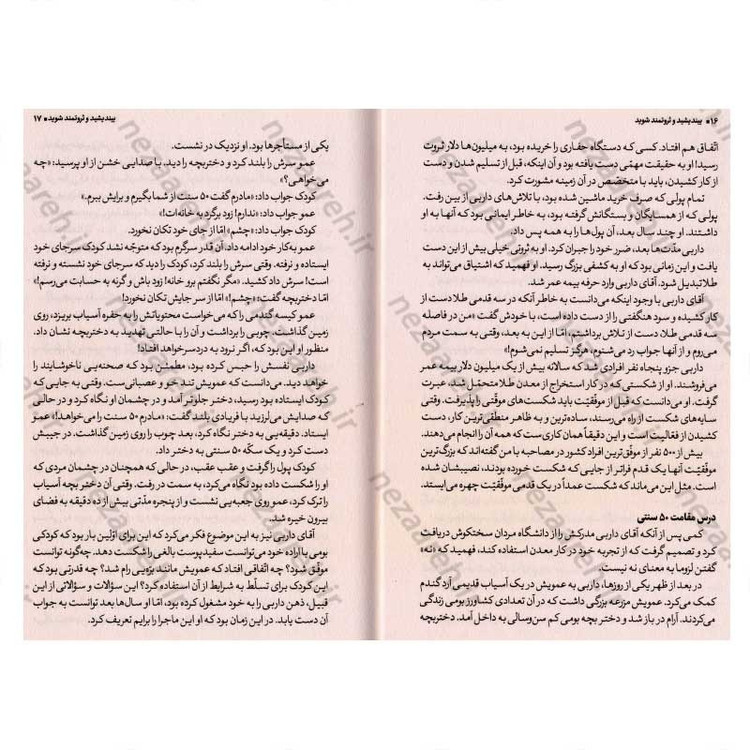 ۱۶ • بیندیشید و ثروتمند شوید
اتّفاق هم افتاد. کسی که دستگاه حفاری را خریده بود، به میلیون‌ها دلار ثروت
رسید! او به حقیقت مهمّی دست یافته بود و آن اینکه، قبل از تسلیم شدن و دست
از کار کشیدن، باید با متخصّص در آن زمینه مشورت کرد.
تمام پولی که صرف خرید ماشین شده بود، با تلاش‌های داربی از بین رفت.
پولی که از همسایگان و بستگانش گرفته بود، به خاطر ایمانی بود که آنها به او
داشتند. او چند سال بعد، آن پول‌ها را به همه پس داد.
داربی مدّت‌ها بعد، ضرر خود را جبران کرد. او به ثروتی خیلی بیش از این دست
یافت و این زمانی بود که او به کشفی بزرگ رسید. او فهمید که اشتیاق می‌تواند به
طلا تبدیل شود. آقای داربی وارد حرفه بیمه عمر شد.
آقای داربی با وجود اینکه می‌دانست به خاطر آنکه در سه قدمی طلا دست از
کار کشیده و سود هنگفتی را از دست داده است، با خودش گفت: «من در فاصله
سه قدمی طلا، دست از تلاش برداشتم، امّا از این به بعد، وقتی به سمت مردم
می‌روم و از آنها جواب رد می‌شنوم، هرگز تسلیم نمی‌شوم!»
داربی جزو پنجاه نفر افرادی شد که سالانه بیش از یک میلیون دلار بیمه عمر
می‌فروشند. او از شکستی که در کار استخراج از معدن طلا متحمّل شد، عبرت
گرفت. او می‌دانست که قبل از موفّقیّت باید شکست‌های موقّتی را پذیرفت. وقتی
سایه‌های شکست از راه می‌رسند، ساده‌ترین و به ظاهر منطقی‌ترین کار، دست
کشیدن از فعالیت است و این دقیقاً همان کاری‌ست که همه آن را انجام می‌دهند.
بیش از ۵۰۰ نفر از موفّق‌ترین افراد کشور در مصاحبه با من گفته‌اند که بزرگ‌ترین
موفّقیّت آنها یک قدم فراتر از جایی که شکست خورده بودند، نصیبشان شده
است. مثل این می‌ماند که شکست عمداً در یک قدمی موفّقیّت چهره می‌ایستد.
درس مقامت ۵۰ سنتی
کمی پس از آنکه آقای داربی مدرکش را از دانشگاه مردان سختکوش دریافت
کرد و تصمیم گرفت که از تجربه خود در کار معدن استفاده کند، فهمید که «نه»
گفتن لزوما به معنای نه نیست.
در بعد از ظهر یکی از روزها، داربی به عمویش در یک آسیاب قدیمی آرد گندم
کمک می‌کرد. عمویش مزرعه بزرگی داشت که در آن تعدادی کشاورز بومی زندگی
می‌کردند. آرام در باز شد و دختر بچه بومی کم سن‌وسالی به داخل آمد. دختربچه
بیندیشید و ثروتمند شوید • ۱۷
یکی از مستأجرها بود. او نزدیک در نشست.
عمو سرش را بلند کرد و دختربچه را دید. با صدایی خشن از او پرسید: «چه
می‌خواهی؟»
کودک جواب داد: «مادرم گفت ۵۰ سنت از شما بگیرم و برایش ببرم.»
عمو جواب داد: «ندارم! زود برگرد به خانه‌ات!»
کودک جواب داد: «چشم» امّا از جای خود تکان نخورد.
عمو به کار خود ادامه داد. آن قدر سرگرم بود که متوجّه نشد کودک سرجای خود
ایستاده و نرفته. وقتی سرش را بلند کرد، کودک را دید که سرجای خود نشسته و نرفته
است! سرش داد کشید: «مگر نگفتم برو خانه! زود باش و گرنه به حسابت می‌رسم!»
دختربچه گفت: «چشم!» امّا از سر جایش تکان نخورد!
عمو کیسه گندمی را که می‌خواست محتویاتش را به حفره آسیاب بریزد، روی
زمین گذاشت. چوبی را برداشت و آن را با حالتی تهدید به دختربچه نشان داد.
منظور او این بود که، اگر نرود به دردسر خواهد افتاد!
داربی نفسش را حبس کرده بود، مطمئن بود که صحنه‌یی ناخوشایند را
خواهد دید. می‌دانست که عمویش تند خو و عصبانی‌ست. وقتی به جایی که
کودک ایستاده بود رسید، دختر جلوتر آمد و در چشمان او نگاه کرد و در حالی
که صدایش می‌لرزید با فریادی بلند گفت: «مادرم ۵۰ سنت را می‌خواهد!» عمو
ایستاد. دقیقه‌یی به دختر نگاه کرد، بعد چوب را روی زمین گذاشت. در جیبش
دست کرد و یک سکّه ۵۰ سنتی به دختر داد.
کودک پول را گرفت و عقب عقب، در حالی که همچنان در چشمان مردی که
او را شکست داده بود نگاه می‌کرد، به سمت در رفت. وقتی آن دختر بچه آسیاب
را ترک کرد، عمو روی جعبه‌یی نشست و از پنجره مدّتی بیش از ده دقیقه به فضای
بیرون خیره شد.
آقای داربی نیز به این موضوع فکر می‌کرد که این برای اوّلین بار بود که کودکی
بومی با اراده خود می‌توانست سفیدپوست بالغی را شکست دهد. چه‌گونه توانست
موفّق شود؟ چه اتّفاقی افتاد که عمویش مانند برّه‌یی رام شد؟ چه قدرتی بود که
این کودک برای تسلّط به شرایط از آن استفاده کرد؟ این سؤالات و سؤالاتی از این
قبیل، ذهن داربی را به خود مشغول کرده بود، امّا او سال‌ها بعد توانست به جواب
آن دست یابد. در این زمان بود که او این ماجرا را برایم تعریف کرد.
nezaareh.ir